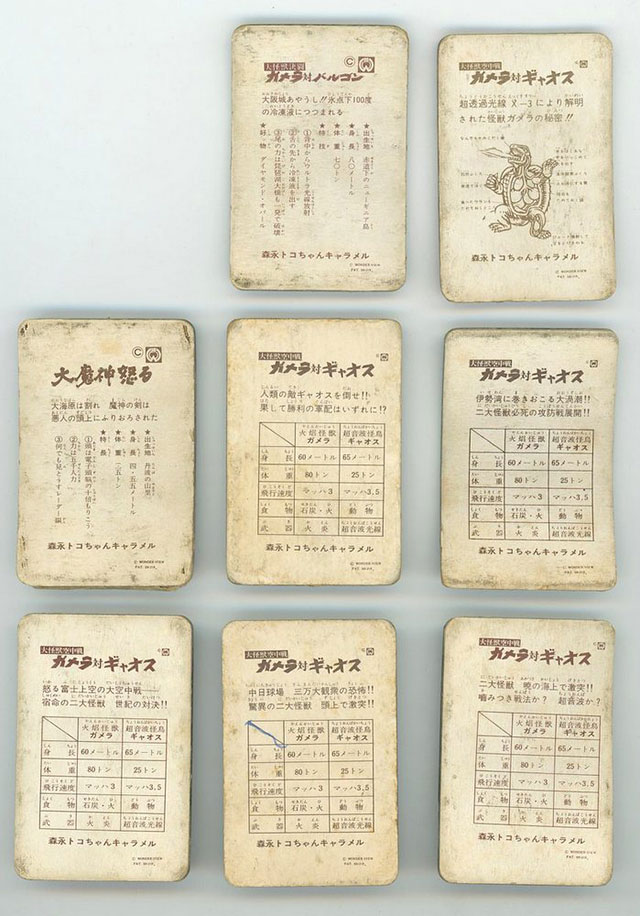 大怪獣決闘
ガメラ対バルゴン
©
大阪城あやうし!!氷点下100度
の冷凍液につつまれる
★出生地 赤道下のニューギニア島
★身長 八〇メートル
★体重 七〇トン
★特技
①背中からウルトラ光線放射
②舌の先から冷凍液を出す
③尾の力は琵琶湖大橋も一発で破壊
★好物 ダイヤモンド・オパール
森永トコちゃんキャラメル
© WONDER-VIEW
大怪獣空中戦
ガメラ対ギャオス
超透過光線X—3により解明
された怪獣ガメラの秘密!!
森永トコちゃんキャラメル
© WONDER-VIEW
©
大魔神怒る
大海原は割れ 魔神の剣は
悪人の頭上にふりおろされた
★出生地 丹波の山里
★身長 四・五五メートル
★体重 二五トン
★特長
②力は五千人力
森永トコちゃんキャラメル
© WONDER-VIEW
大怪獣空中戦
ガメラ対ギャオス
人類の敵ギャオスを倒せ!!
果して勝利の軍配はいずれに!?
火焔怪獣 超音波怪鳥
ガメラ ギャオス
身長 60メートル 65メートル
体重 80トン 25トン
飛行速度 マッハ3 マッハ3.5
食物 石炭・火 動物
武器 火炎 超音波光線
森永トコちゃんキャラメル
© WONDER-VIEW
大怪獣空中戦
ガメラ対ギャオス
伊勢湾に巻きおこる大渦潮!!
二大怪獣必死の攻防戦展開!!
火焔怪獣 超音波怪鳥
ガメラ ギャオス
身長 60メートル 65メートル
体重 80トン 25トン
飛行速度 マッハ3 マッハ3.5
食物 石炭・火 動物
武器 火炎 超音波光線
森永トコちゃんキャラメル
© WONDER-VIEW
大怪獣空中戦
ガメラ対ギャオス
怒る富士上空の大空中戦——
宿命の二大怪獣 世紀の対決!!
火焔怪獣 超音波怪鳥
ガメラ ギャオス
身長 60メートル 65メートル
体重 80トン 25トン
飛行速度 マッハ3 マッハ3.5
食物 石炭・火 動物
武器 火炎 超音波光線
森永トコちゃんキャラメル
© WONDER-VIEW
大怪獣空中戦
ガメラ対ギャオス
中日球場 三万大観衆の恐怖!!
驚異の二大怪獣 頭上で激突!!
火焔怪獣 超音波怪鳥
ガメラ ギャオス
身長 60メートル 65メートル
体重 80トン 25トン
飛行速度 マッハ3 マッハ3.5
食物 石炭・火 動物
武器 火炎 超音波光線
森永トコちゃんキャラメル
© WONDER-VIEW
大怪獣空中戦
ガメラ対ギャオス
二大怪獣 暁の海上で激突!!
嚙みつき戦法か? 超音波か?
火焔怪獣 超音波怪鳥
ガメラ ギャオス
身長 60メートル 65メートル
体重 80トン 25トン
飛行速度 マッハ3 マッハ3.5
食物 石炭・火 動物
武器 火炎 超音波光線
森永トコちゃんキャラメル
© WONDER-VIEW